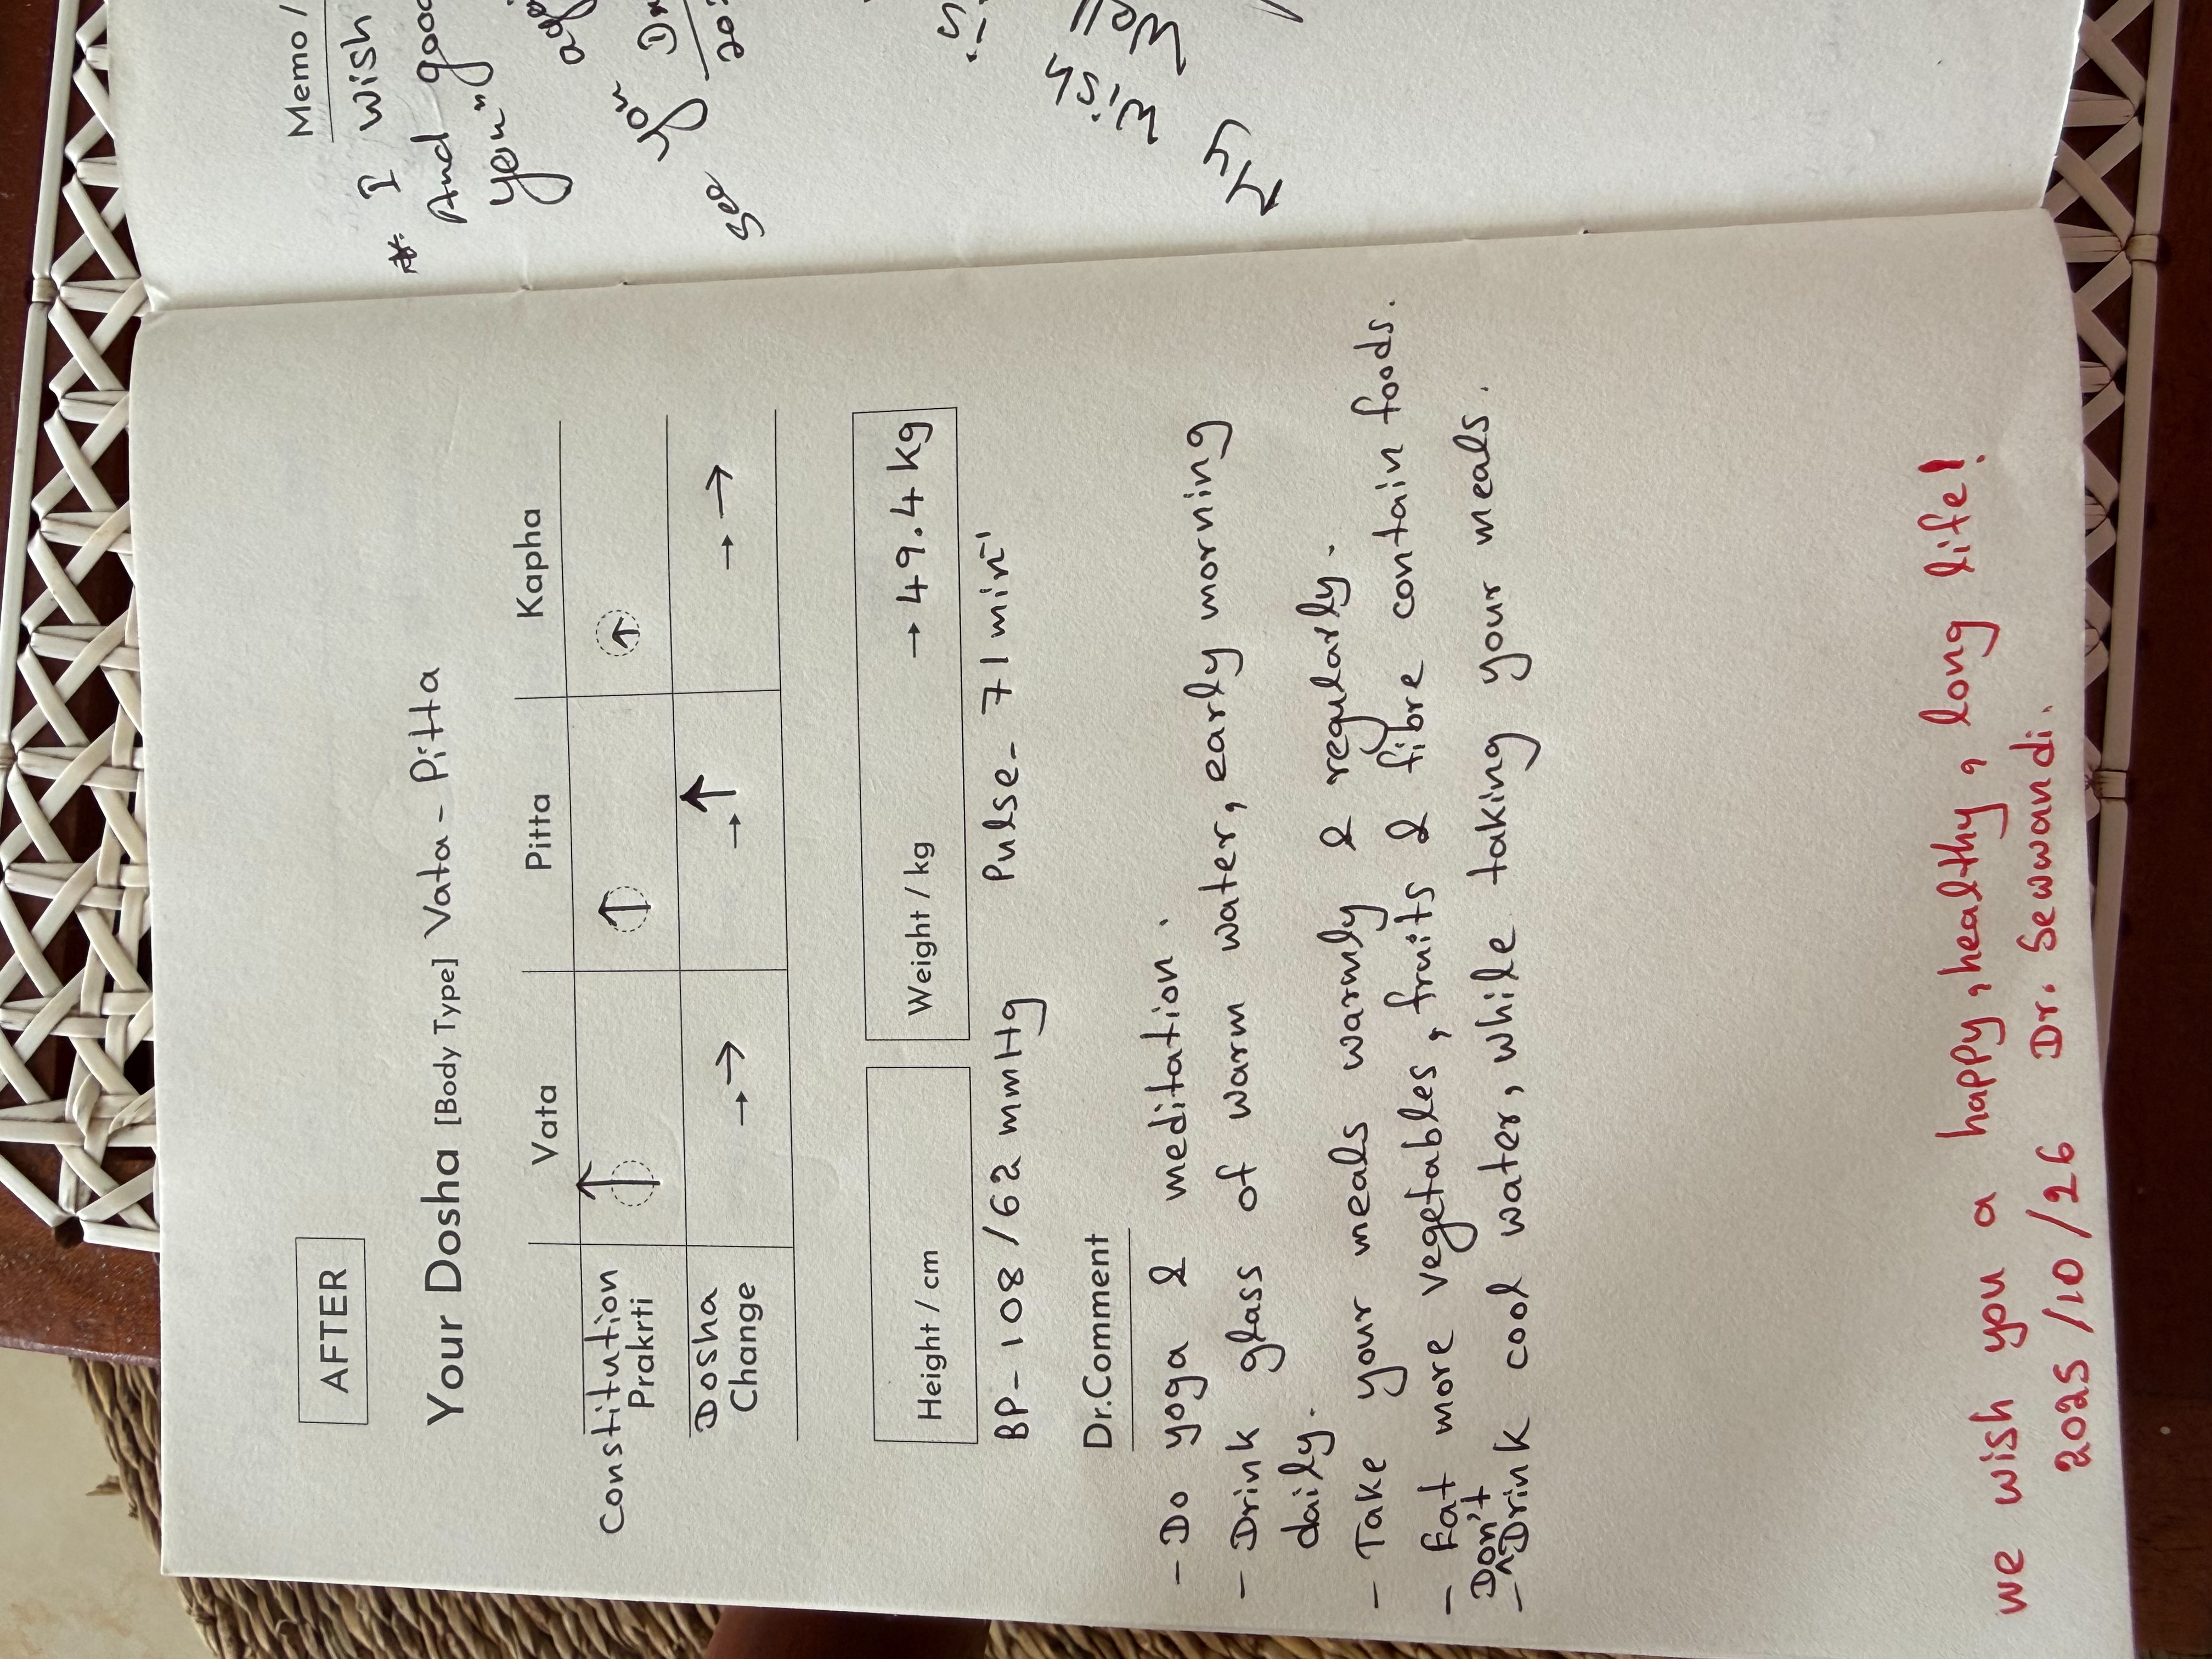 AFTER
Your Dosha [Body Type] Vata - Pitta
Vata Pitta Kapha
Constitution
Prakrti
↑ ↑ ↑
Dosha
Change
→ → → ↑ → →
Height / cm
Weight / kg → 49.4 kg
BP - 108 / 62 mmHg Pulse - 71 min⁻¹
Dr.Comment
- Do yoga & meditation.
- Drink glass of warm water, early morning
daily.
- Take your meals warmly & regularly.
- Eat more vegetables, fruits & fibre contain foods.
Don't
- ^Drink cool water, while taking your meals.
we wish you a happy, healthy, long life!
2025/10/26 Dr. Sewwandi.
Memo /
* I wish
And good
you"
see you